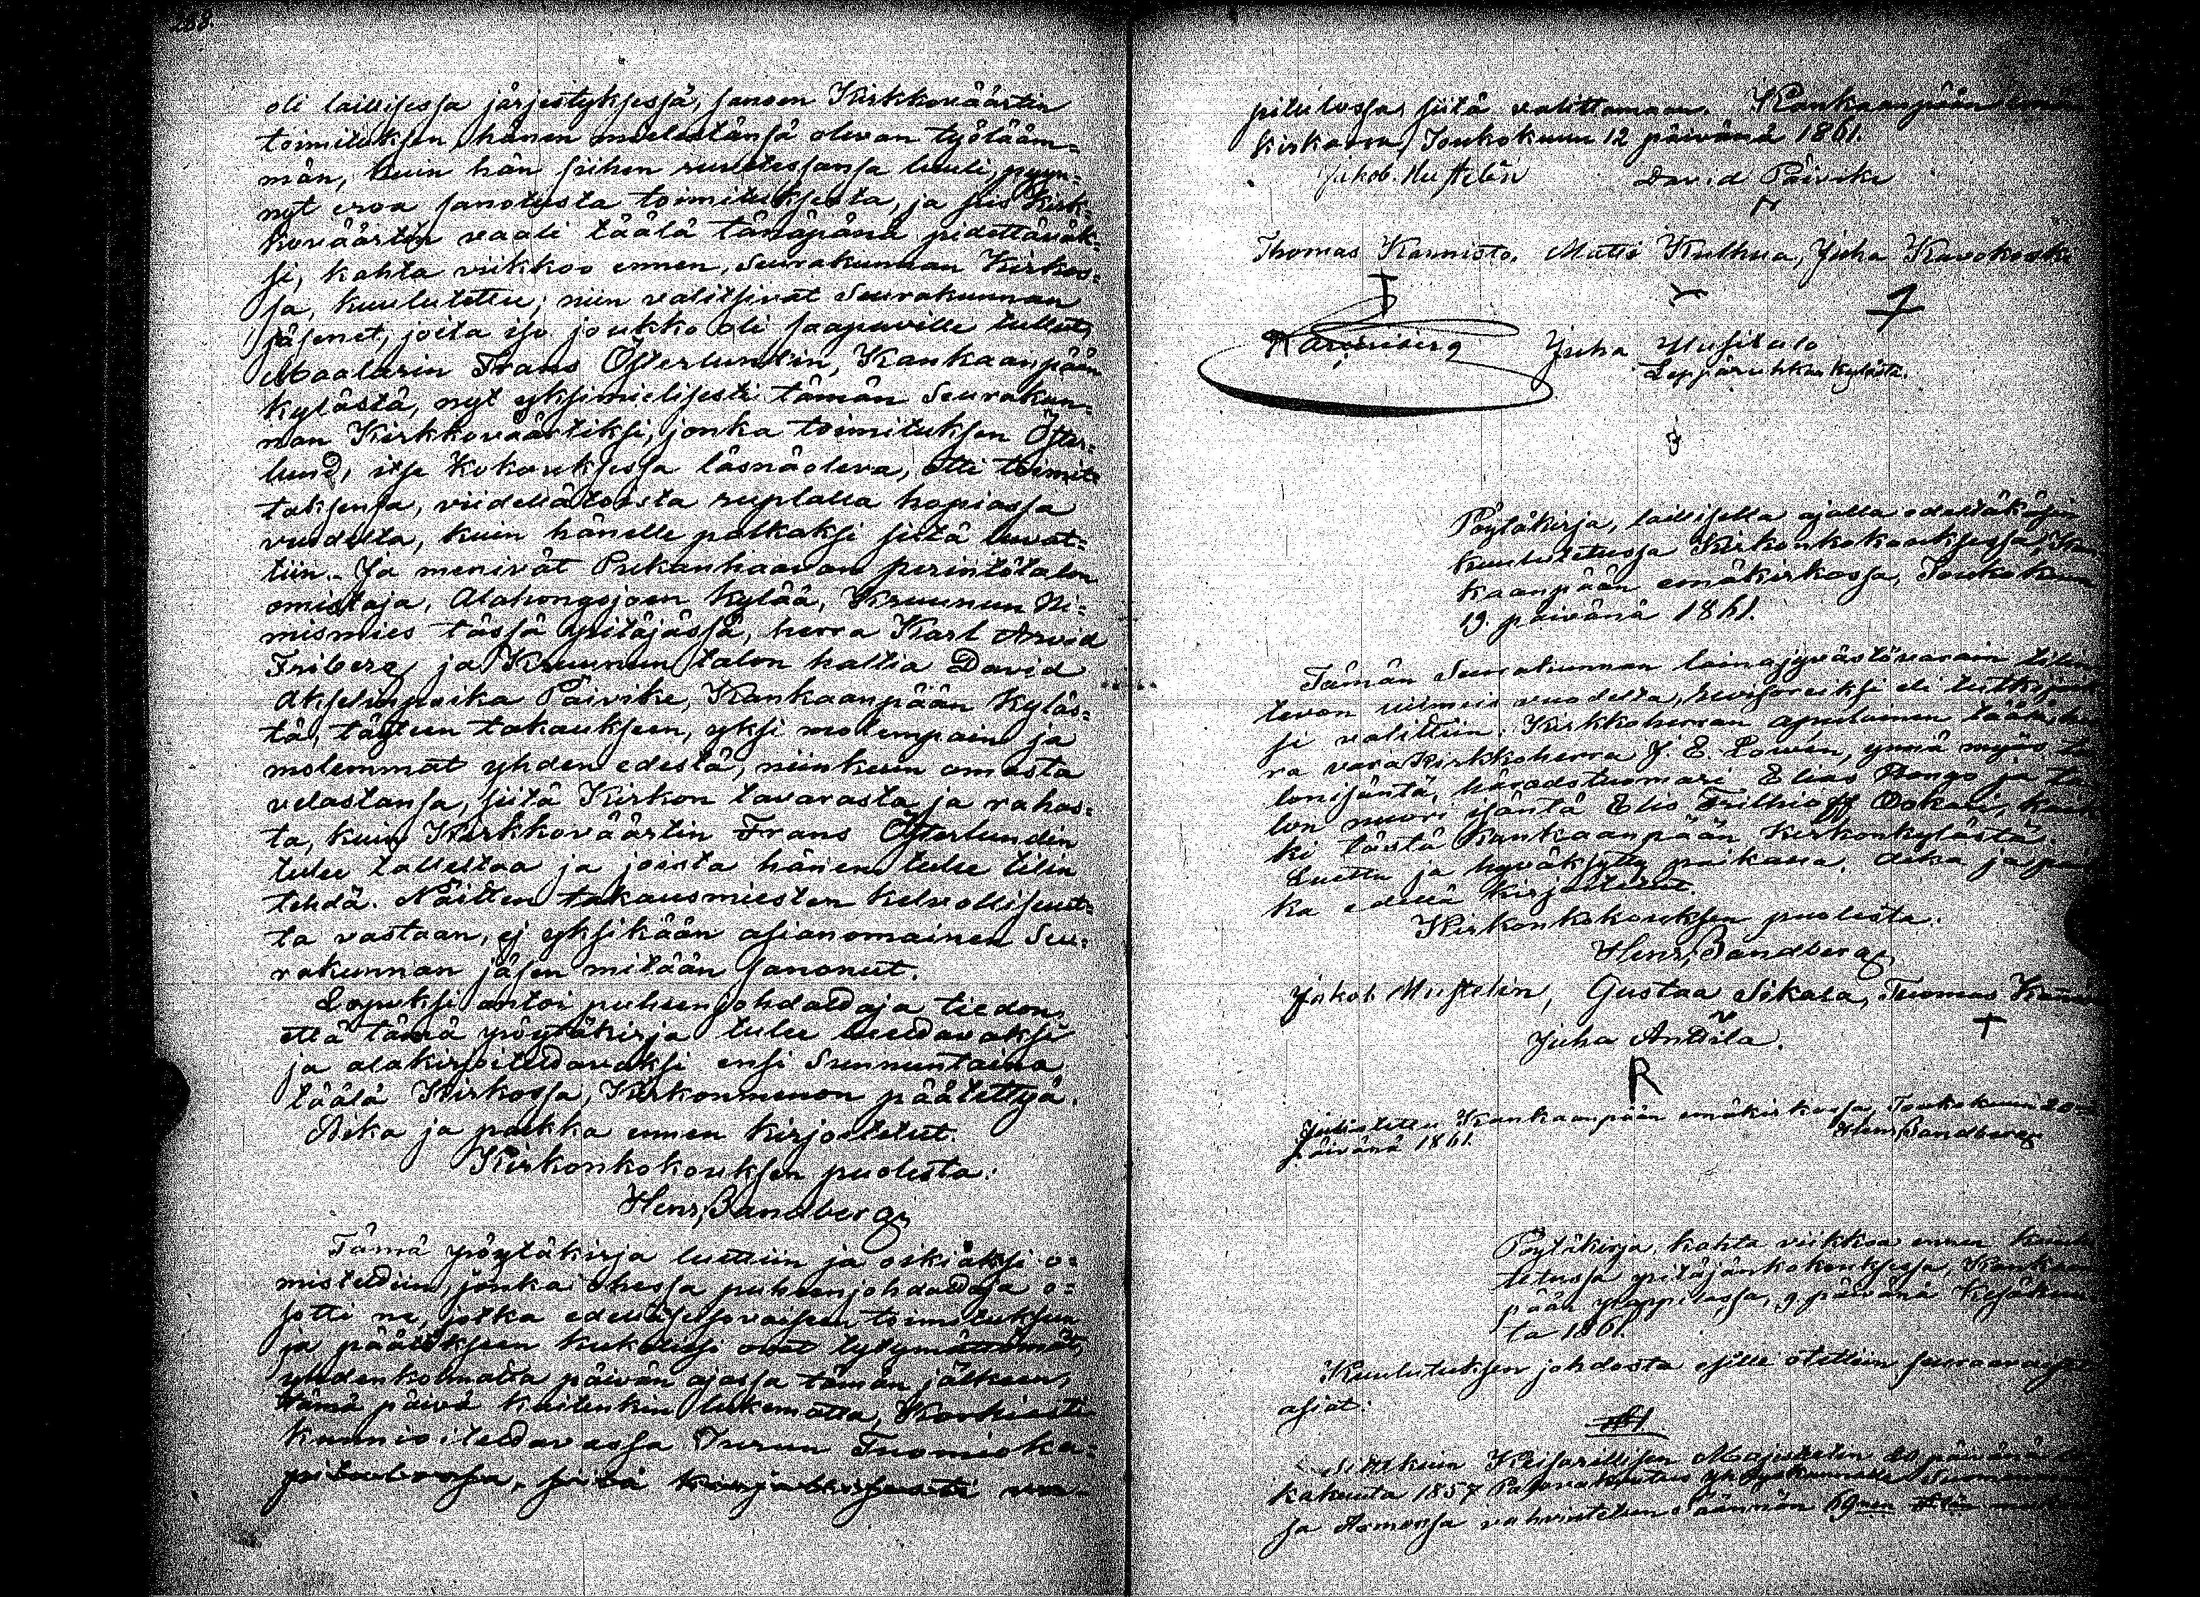 288.
oli laillisessa järjestyksessä, sanoen Kirkkoväärtin
toimituksen hänen mielestänsä olevan työlääm=
män, kuin hän siihen ruvetessansa luuli, pyyn=
nyt eroa sanotusta toimituksesta, ja siis Kirk=
kováärtin vaali täälä tänäpänä pidettäväk=
si, kahta viikkoo ennen, Seurakunnan Kirkos=
sa, kuulutettu; niin valitsivat Seurakunnan
jäsenet, joita iso joukko oli saapuville tullut,
Maalarin Frans Österlundin, Kankaanpään
kylästä, nyt yksimielisesti tämän Seurakun=
nan Kirkkoväärtiksi, jonka toimituksen Öster=
lund, itse Kokouksessa läsnäoleva, otti toimit
taksensa, viidellätoista ruplalla hopiassa
vuodelta, kuin hänelle palkaksi siitä luvat=
tiin.- Ja menivät Pukanhaavan perintötalon
omistaja, Alahongojoen kylää, Kruunun Ni=
mismies tässä pitäjässä, herra Karl Arvid
Friberg ja Kruunun talon haltia David
Akselinpoika Päivike, Kankaanpään Kyläs=
tä, täyteen takaukseen, yksi molempain ja
molemmat yhden edestä, niinkuin omasta
velastansa, siitä Kirkon tavarasta ja rahas=
ta, kuin Kirkkoväärtin Frans Österlundin
tulee tallettaa ja joista hänen tulee tilin
tehdä. Näitten takausmiesten kelvollisuut=
ta vastaan, ej yksikään asianomainen Seu=
rakunnan jäsen mitään sanonut.
Lopuksi antoi puheenjohdattaja tiedon,
että tämä pöytäkirja tulee luettavaksi
ja alakirjoitettavaksi ensi Sunnuntaina
täälä Kirkossa, Kirkonmenon päätettyä.
Aika ja paikka ennen kirjoitetut.
Kirkonkokouksen puolesta:
Henr. Sandberg
Tämä pöytäkirja luettiin ja oikiaksi o=
mistettiin, jonka ohessa puheenjohdattaja o=
sotti ne, jotka edelläseisovaiseen toimitukseen
ja päätökseen kukatiesi ovat tytymättömät,
yhdenkolmatta päivän ajassa tämän jälkeen,
tämä päivä kuitenkin lukematta, Korkiasti
kunnioitettavassa Turun Tuomioka=
pitulossa, siitä kirjallisesti
pitulossa siitä valittamaan. Kankaanpään
kirkossa, Toukokuun 12 päivänä 1861.
Jakob Mustelin David Päivike
Thomas Kannisto, Matti Kulhua, Juha Kavokoski
Juha Uusitalo
kylästä.
Pöytäkirja, laillisella ajalla edeltäkäsin
kuulutetussa Kirkonkokouksessa, Kan
kaanpään emäkirkossa, Toukokuun
19. päivänä 1861.
Tämän Seurakunnan lainajyvästövarain tilin
tevon viimeis vuodelta, reviisoreiksi eli
si valittiin: Kirkkoherran apulainen täälä,
ra varaKirkkoherra J. E. Lowén, ynnä myös
lonisäntä, häradstuomari Elias Hongo ja
lon nuori isäntä Elis Frithioff Ookan,
ki tästä Kankaanpään Kirkonkylästä.
Luettu ja hyväksytty paikalla. Aika ja
ka edellä kirjoitetut.
Kirkonkokouksen puolesta:
Henr. Sandberg
Jakob Mustelin, Gustaa Sikala, Tuomas
Juha Anttila.
R
Julistettu Kankaanpään emäkirkossa, Toukokuun 20
päivänä 1861. Henr. Sandberg
Pöytäkirja, kahta viikkoa ennen
tetussa pitäjänkokouksessa, Kankaan
pään pappilassa, 9. päivänä Kesäkuu
ta 1861.
Kuulutuksen johdosta esille otettiin seuraavaiset
asiat:
§1
Keisarillisen Majesteetin päivänä
kakuuta 1857
sa Armossa vahvistetun säännön 69